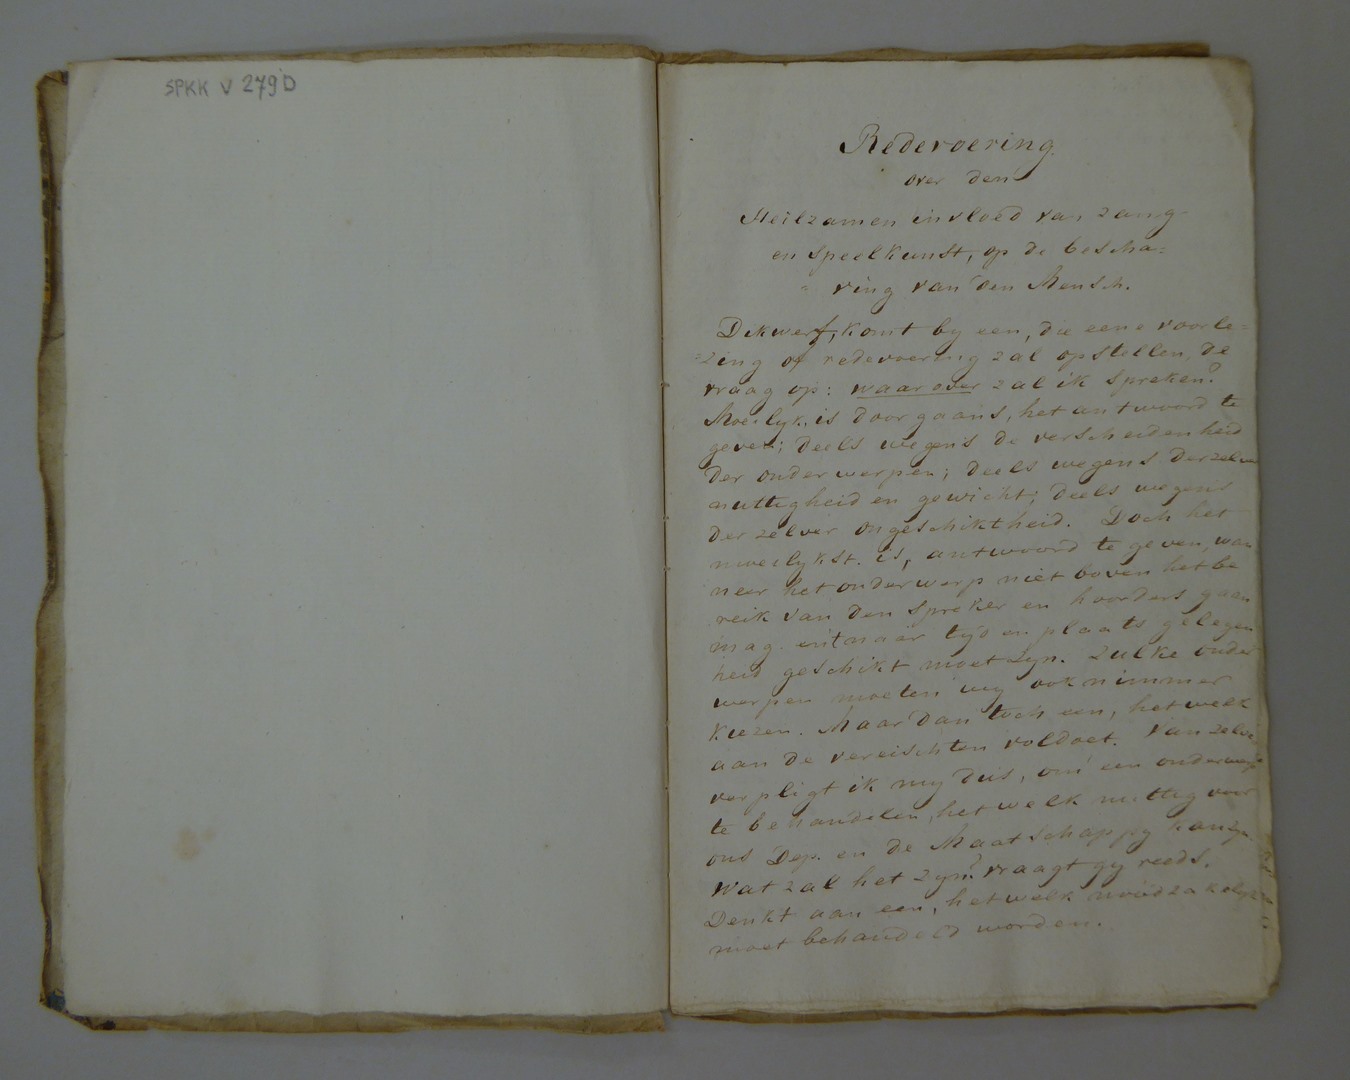 SPKK V 279D
Redevoering
over den
Heilzamen invloed van zang
en speelkunst, op de bescha=
ving van den Mensch.
Dikwerf, komt by een, die eene voorle=
=zing of redevoering zal opstellen, de
vraag op: waar over zal ik spreken?
Moeilyk, is door gaans, het antwoord te
geven; deels wegens de verscheidenheid
der onderwerpen; deels wegens derzelver
nuttigheid en gewicht; deels wegens
derzelver ongeschiktheid. Doch het
moeilykst. is, antwoord te geven, wan
neer het onderwerp niet boven het be
reik van den spreker en hoorders gaan
mag. en naar tijd en plaats gelegen
heid geschikt moet zyn. Zulke onder
werpen moeten wij ook nimmer
kiezen. Maar dan toch een, het welk
aan de vereischten voldoet. Van zelve
verpligt ik my dus, om een onderwerp
te behandelen, het welk nuttig voor
ons Dep. en de Maatschappy kan zyn
Wat zal het zyn? vraagt gy reeds.
Denkt aan een, het welk noodzakelyk
moet behandeld worden.